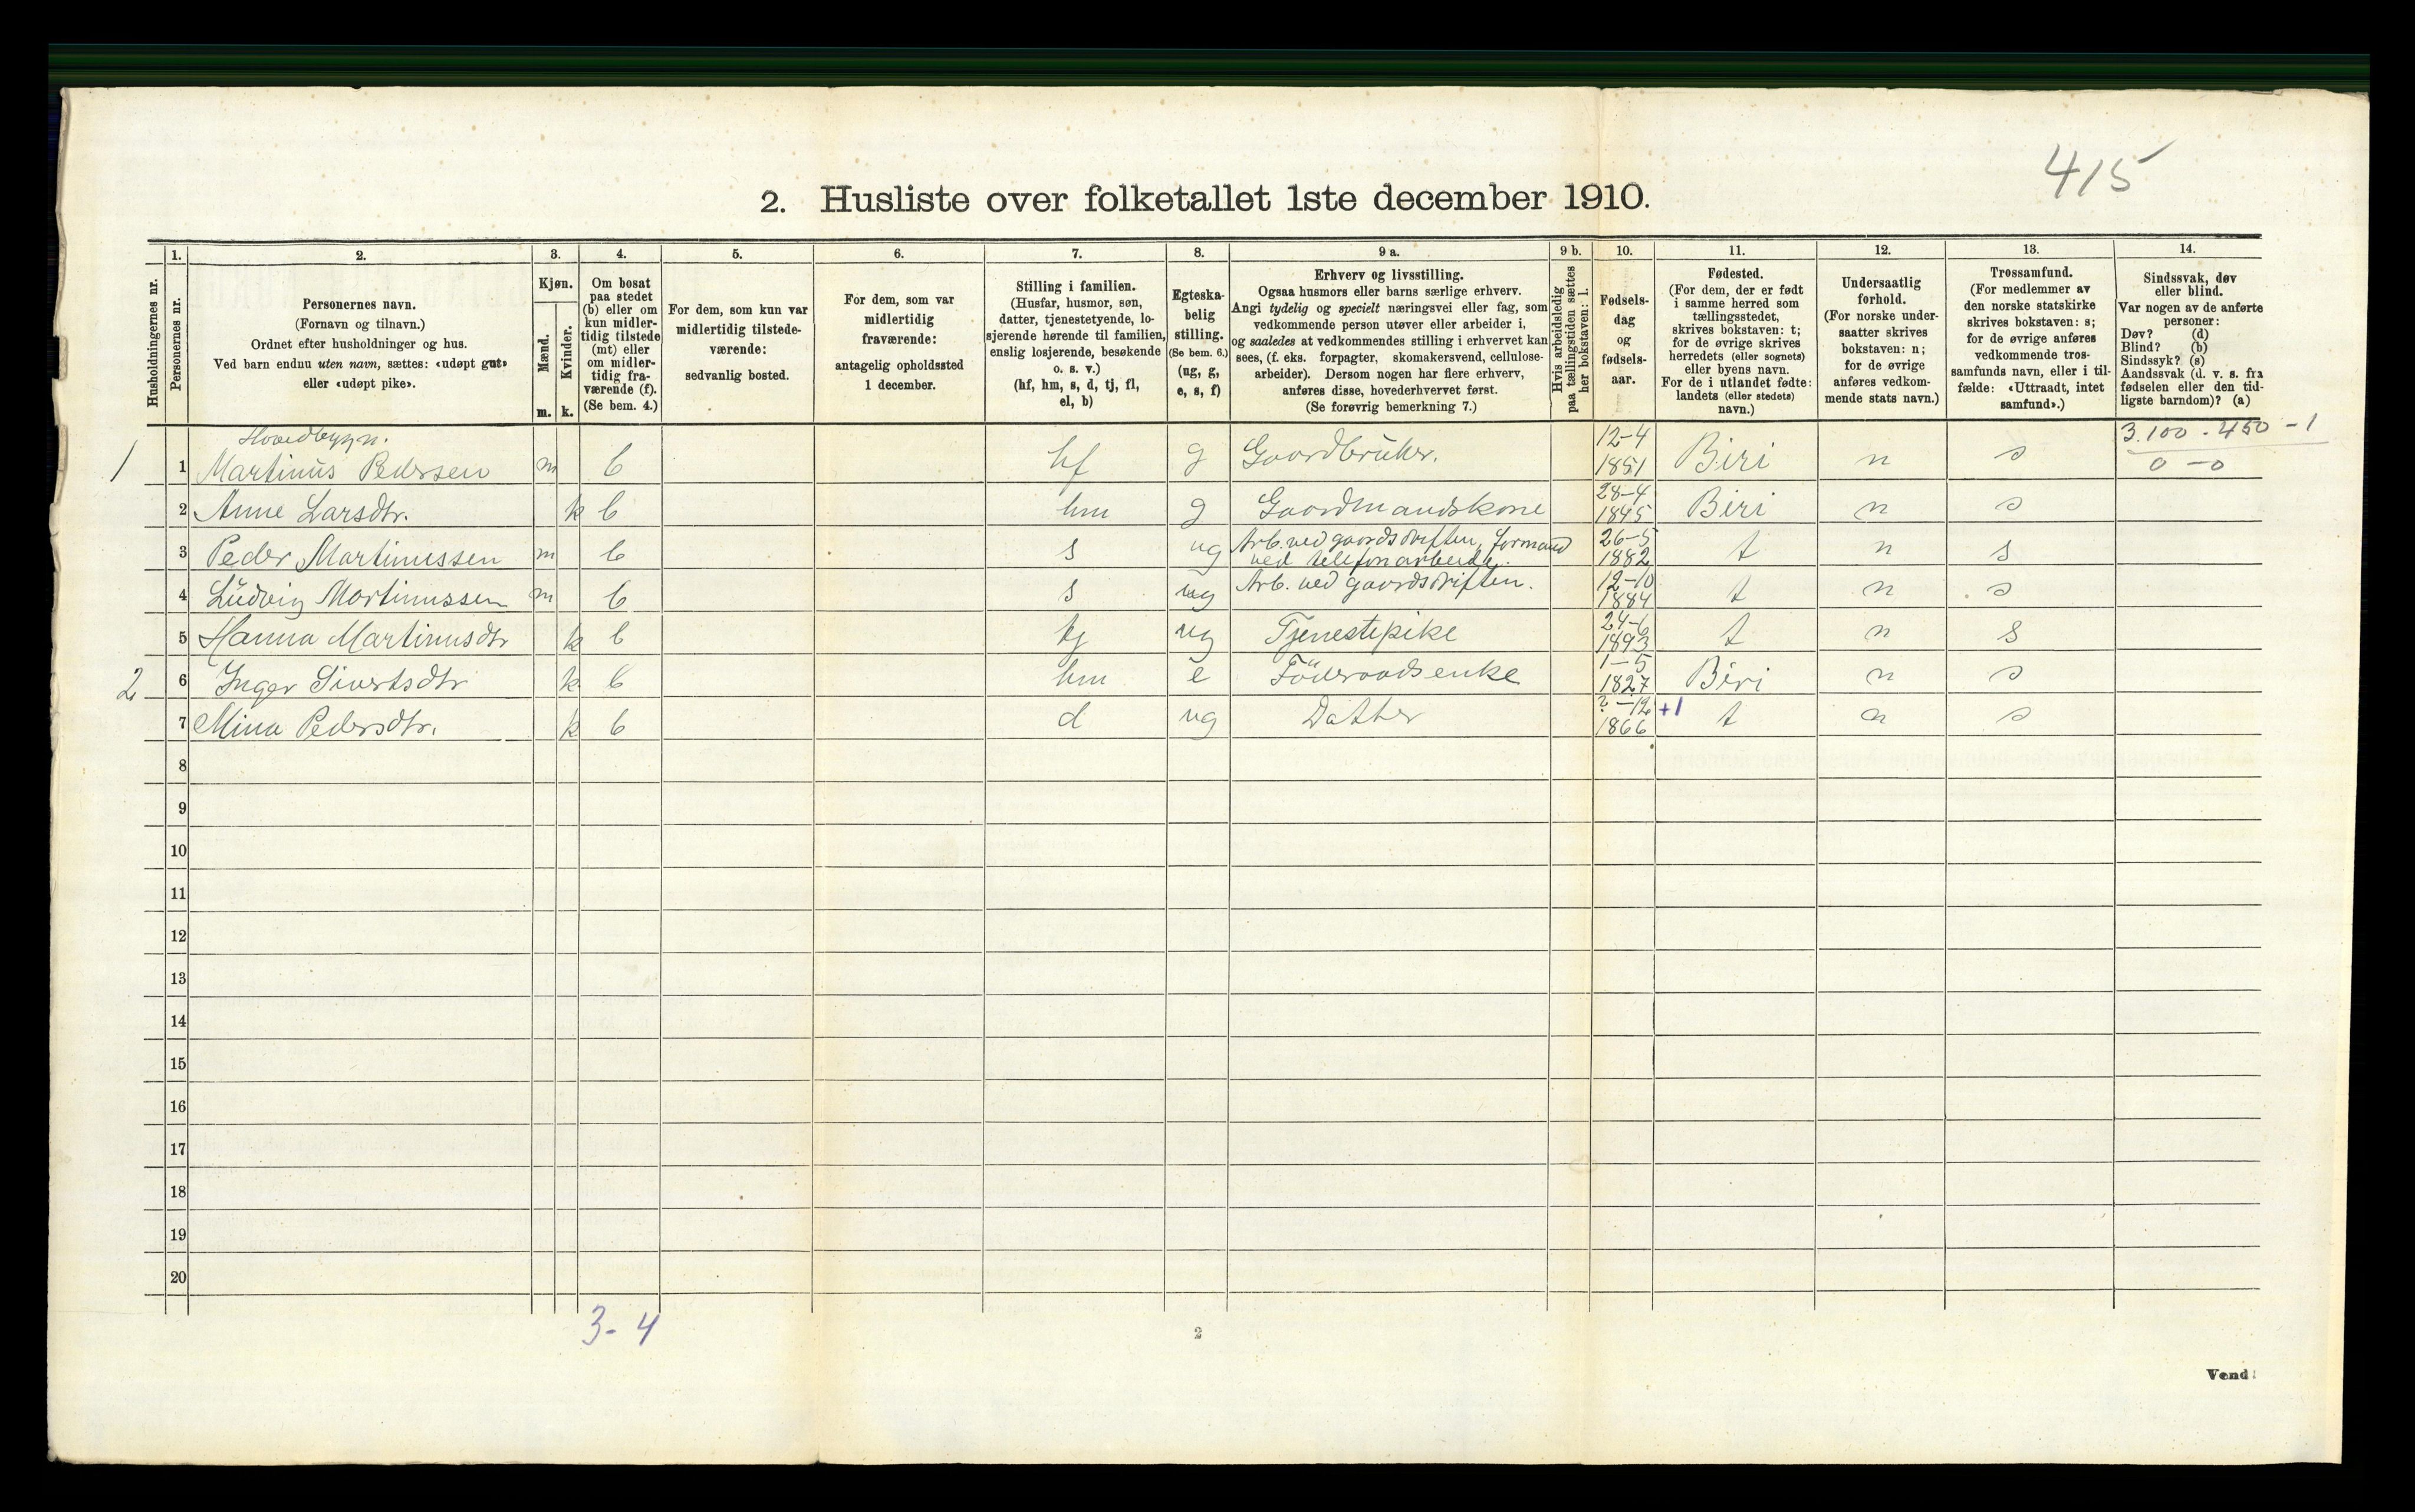 415
2. Husliste over folketallet 1ste december 1910.
Husholdningernes nr.
1.
Personernes nr.
2.
Personernes navn.
(Fornavn og tilnavn.)
Ordnet efter husholdninger og hus.
Ved barn endnu uten navn, sættes: «udøpt gut»
eller «udøpt pike».
3.
Kjøn.
Mænd.
m.
Kvinder.
k.
4.
Om bosat
paa stedet
(b) eller om
kun midler-
tidig tilstede
(mt) eller
om midler-
tidig fra-
værende (f).
(Se bem. 4.)
5.
For dem, som kun var
midlertidig tilstede-
værende:
sedvanlig bosted.
6.
For dem, som var
midlertidig
fraværende:
antagelig opholdssted
1 december.
7.
Stilling i familien.
(Husfar, husmor, søn,
datter, tjenestetyende, lo-
sjerende hørende til familien,
enslig losjerende, besøkende
o. s. v.)
(hf, hm, s, d, tj, fl,
el, b)
8.
Egteska-
belig
stilling.
(Se bem. 6.)
(ug, g,
e, s, f)
9 a.
Erhverv og livsstilling.
Ogsaa husmors eller barns særlige erhverv.
Angi tydelig og specielt næringsvei eller fag, som
vedkommende person utøver eller arbeider i,
og saaledes at vedkommendes stilling i erhvervet kan
sees, (f. eks. forpagter, skomakersvend, cellulose-
arbeider). Dersom nogen har flere erhverv,
anføres disse, hovederhvervet først.
(Se forøvrig bemerkning 7.)
9 b.
Hvis arbeidsledig
paa tællingstiden sættes
her bokstaven: l.
10.
Fødsels-
dag
og
fødsels-
aar.
11.
Fødested.
(For dem, der er født
i samme herred som
tællingsstedet,
skrives bokstaven: t;
for de øvrige skrives
herredets (eller sognets)
eller byens navn.
For de i utlandet fødte:
landets (eller stedets)
navn.)
12.
Undersaatlig
forhold.
(For norske under-
saatter skrives
bokstaven: n;
for de øvrige
anføres vedkom-
mende stats navn.)
13.
Trossamfund.
(For medlemmer av
den norske statskirke
skrives bokstaven: s;
for de øvrige anføres
vedkommende tros-
samfunds navn, eller i til-
fælde: «Uttraadt, intet
samfund».)
14.
Sindssvak, døv
eller blind.
Var nogen av de anførte
personer:
Døv? (d)
Blind? (b)
Sindssyk? (s)
Aandssvak (d. v. s. fra
fødselen eller den tid-
ligste barndom)? (a)
Hovedbygn.
3.100 - 450 - 1
0 - 0
1 1 Martinus Pedersen m b hf g Gaardbruker. 12-4 1851 Biri n s
2 Anne Larsdtr. k b hm g Gaardmandskone 28-4 1845 Biri n s
3 Peder Martinussen m b s ug Arb. ved gaardsdriften, formand ved telefonarbeide. 26-5 1882 t n s
4 Ludvig Martinussen m b s ug Arb. ved gaardsdriften. 12-10 1884 t n s
5 Hanna Martinusdtr k b tj ug Tjenestepike 24-6 1893 t n s
2 6 Inger Sivertsdtr k b hm e Föderaadsenke 1-5 1827 Biri n s
7 Mina Pedersdtr. k b d ug Datter ?-12 1866 +1 t n s
8
9
10
11
12
13
14
15
16
17
18
19
20
3-4
2
Vend!